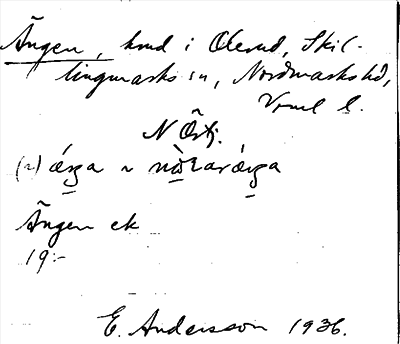 Ängen, hmd i Olerud, Skil-
lingmarks sn, Nordmarks hd,
Vrml l.
N Östj.
(~) ærga ~ nòrarærga
Ängen ek
19:-
E. Andersson 1936.